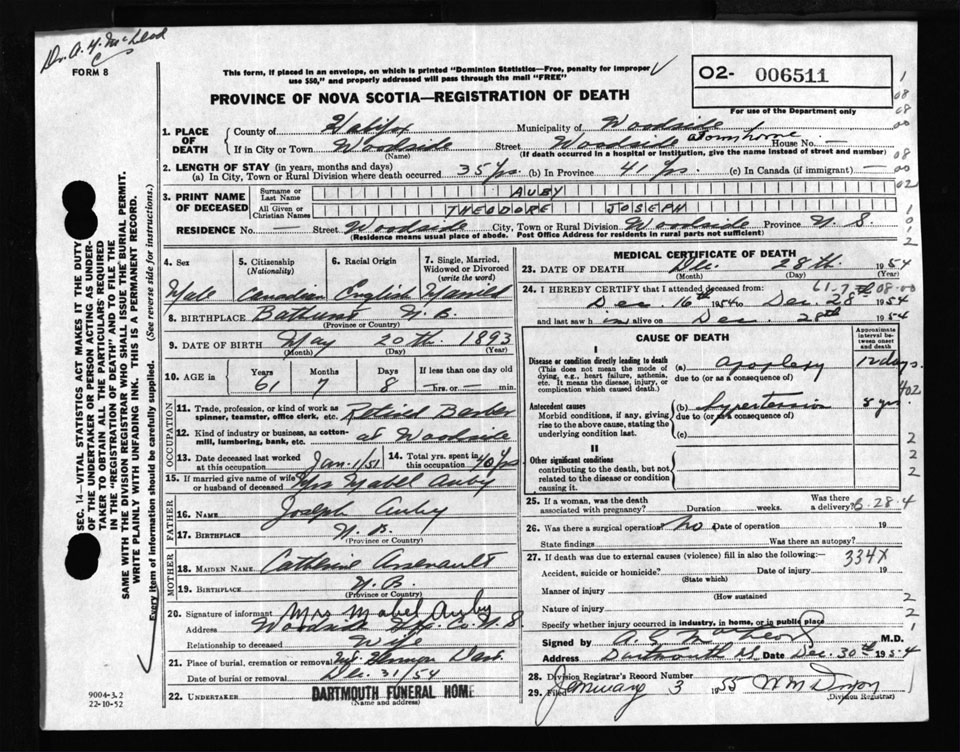 Dr. A. G. McLeod
FORM 8
This form, if placed in an envelope, on which is printed "Dominion Statistics—Free, penalty for improper
use $50," and properly addressed will pass through the mail "FREE"
O2- 006511
For use of the Department only
PROVINCE OF NOVA SCOTIA—REGISTRATION OF DEATH
1. PLACE OF DEATH
County of Halifax Municipality of Woodside
If in City or Town Woodside Street Woodside at own home House No. —
(Name) (If death occurred in a hospital or institution, give the name instead of street and number)
2. LENGTH OF STAY (in years, months and days)
(a) In City, Town or Rural Division where death occurred 35 yrs. (b) In Province 41 yrs. (c) In Canada (if immigrant)
3. PRINT NAME OF DECEASED
Surname or Last Name AUBY
All Given or Christian Names THEODORE JOSEPH
RESIDENCE No. — Street Woodside City, Town or Rural Division Woodside Province N. S.
(Residence means usual place of abode. Post Office Address for residents in rural parts not sufficient)
SEC. 14—VITAL STATISTICS ACT MAKES IT THE DUTY
OF THE UNDERTAKER OR PERSON ACTING AS UNDER-
TAKER TO OBTAIN ALL THE PARTICULARS REQUIRED
IN THE "REGISTRATION OF DEATH" AND TO FILE THE
SAME WITH THE DIVISION REGISTRAR WHO SHALL ISSUE THE BURIAL PERMIT.
WRITE PLAINLY WITH UNFADING INK. THIS IS A PERMANENT RECORD.
Every item of information should be carefully supplied. (See reverse side for instructions.)
4. Sex
Male
5. Citizenship
(Nationality)
Canadian
6. Racial Origin
English
7. Single, Married,
Widowed or Divorced
(write the word)
Married
8. BIRTHPLACE Bathurst N.B.
(Province or Country)
9. DATE OF BIRTH May 20th. 1893
(Month) (Day) (Year)
10. AGE in
Years Months Days If less than one day old
61 7 8 hrs. or — min.
OCCUPATION
11. Trade, profession, or kind of work as
spinner, teamster, office clerk, etc. Retired Barber
12. Kind of industry or business, as cotton-
mill, lumbering, bank, etc. at Woodside
13. Date deceased last worked
at this occupation Jan. 1/51
14. Total yrs. spent in
this occupation 40 yrs
15. If married give name of wife
or husband of deceased Mrs Mabel Auby
FATHER
16. Name Joseph Auby
17. Birthplace N.B.
(Province or Country)
MOTHER
18. MAIDEN NAME Catherine Arsenault
19. BIRTHPLACE N.B.
(Province or Country)
20. Signature of informant Mrs Mabel Auby
Address Woodside Hfx. Co. N.S
Relationship to deceased Wife
21. Place of burial, cremation or removal Mt. Hermon Dart.
Date of burial or removal Dec. 31/54
22. UNDERTAKER DARTMOUTH FUNERAL HOME
(Name and address)
9004-3.2
22-10-52
MEDICAL CERTIFICATE OF DEATH
23. DATE OF DEATH Dec. 28th. 1954
(Month) (Day) (Year)
24. I HEREBY CERTIFY that I attended deceased from:
Dec. 16th 1954 to Dec. 28 1954
and last saw him alive on Dec. 28th 1954
CAUSE OF DEATH
Approximate interval between onset and death
I
Disease or condition directly leading to death
(This does not mean the mode of
dying, e.g., heart failure, asthenia,
etc. It means the disease, injury, or
complication which caused death.)
(a) Apoplexy 12 days
due to (or as a consequence of)
Antecedent causes
Morbid conditions, if any, giving
rise to the above cause, stating the
underlying condition last.
(b) Hypertension 8 yrs
due to (or as a consequence of)
(c)
II
Other significant conditions
contributing to the death, but not
related to the disease or condition
causing it.
25. If a woman, was the death
associated with pregnancy? Duration weeks. Was there
a delivery?
26. Was there a surgical operation? No Date of operation 19
State findings Was there an autopsy?
27. If death was due to external causes (violence) fill in also the following:— 334X
Accident, suicide or homicide? Date of injury 19
(State which)
Manner of injury
(How sustained)
Nature of injury
Specify whether injury occurred in industry, in home, or in public place
Signed by A. G. MacLeod M.D.
Address Dartmouth N.S. Date Dec. 30th 1954
28. Division Registrar's Record Number
29. Filed January 3 1955 Wm Dixon
(Division Registrar)